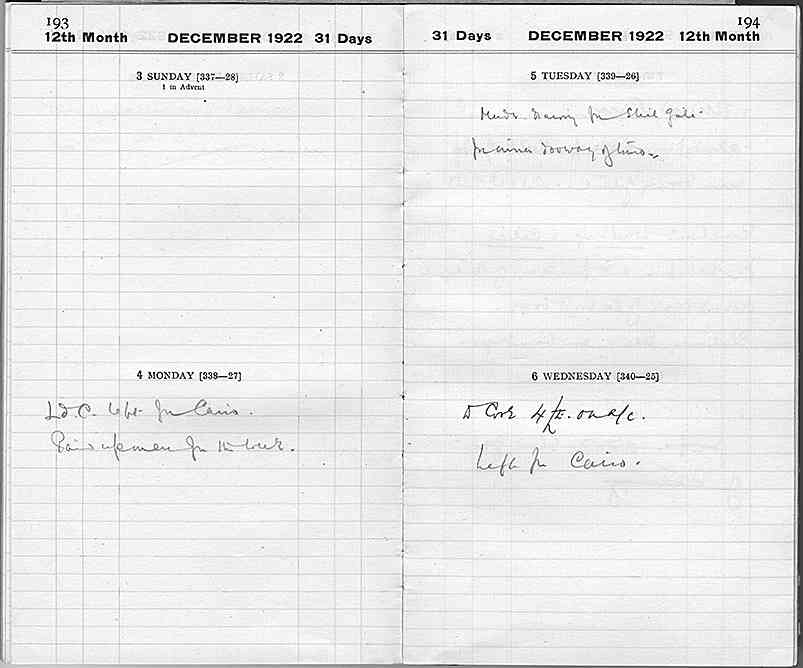 193
12th Month DECEMBER 1922 31 Days
3 SUNDAY [337—28]
1 in Advent
4 MONDAY [338—27]
Ld. C. left for Cairo.
Paid up men for the week.
194
31 Days DECEMBER 1922 12th Month
5 TUESDAY [339—26]
Made drawing for Steel Gate
for inner doorway of tomb.
6 WEDNESDAY [340—25]
to Cook on a/c.
Left for Cairo.